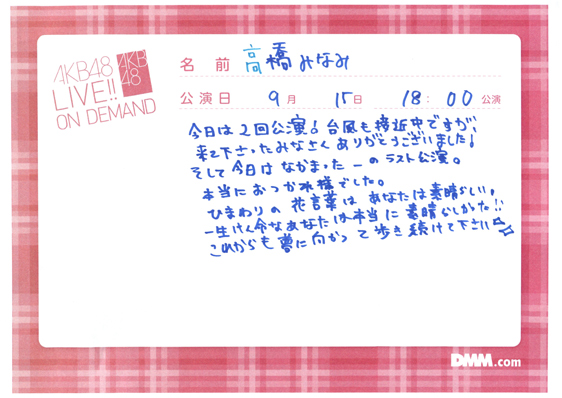 AKB48
LIVE!!
ON DEMAND
AKB
48
名 前 高橋みなみ
公演日 9月 15日 18:00 公演
今日は2回公演！台風も接近中ですが、
来て下さったみなさん ありがとうございました！
そして今日は なかまったーのラスト公演。
本当におつかれ様でした。
ひまわりの 花言葉は あなたは素晴らしい。
一生けん命なあなたは本当に 素晴らしかった！！
これからも夢に向かって歩き続けて下さい☆☆
DMM.com